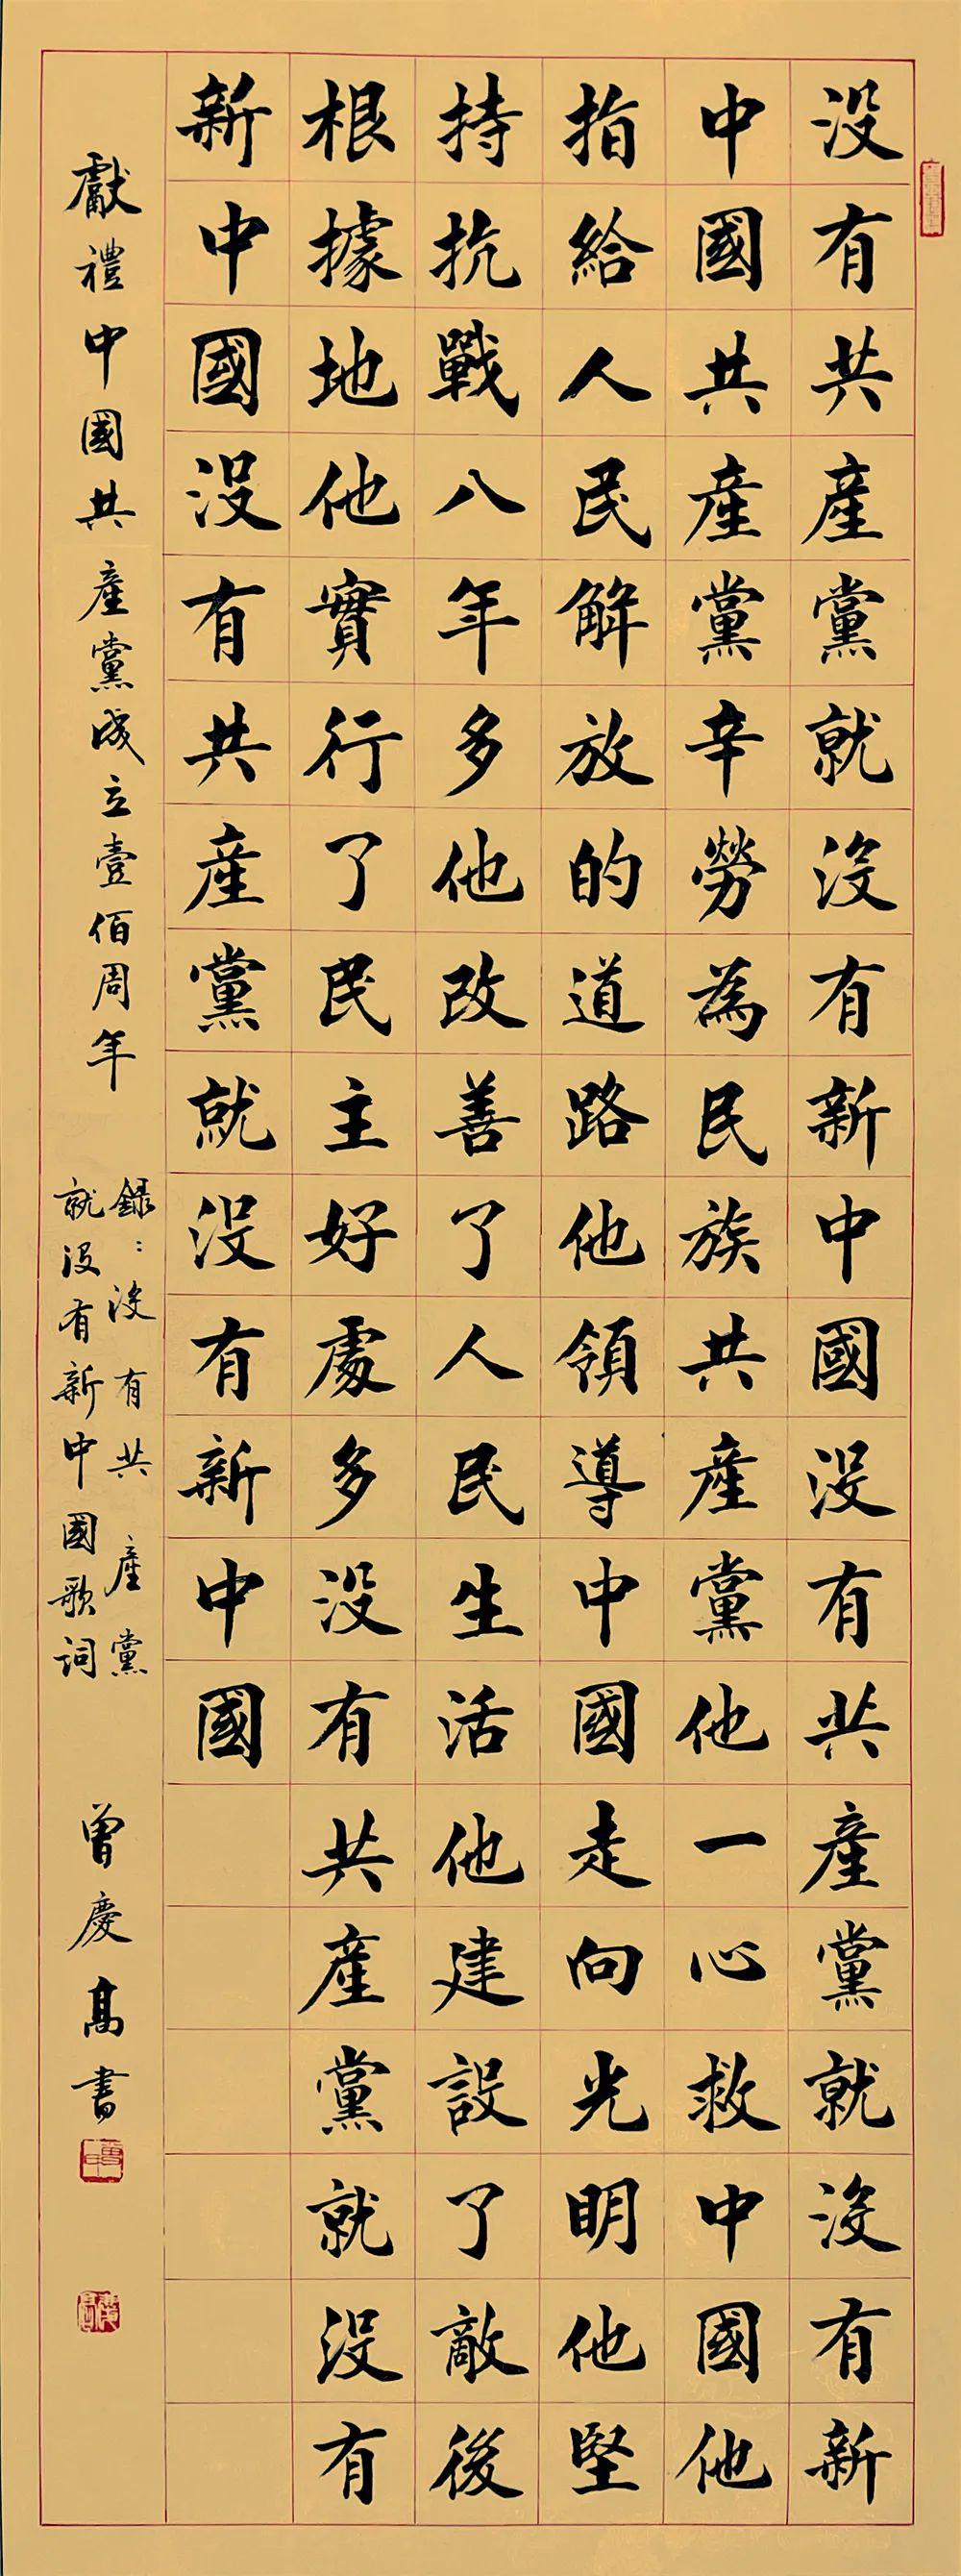 没有共產黨就没有新中國没有共產黨就没有新
中國共產黨辛勞為民族共產黨他一心救中國他
指給人民解放的道路他領導中國走向光明他堅
持抗戰八年多他改善了人民生活他建設了敵後
根據地他實行了民主好處多没有共產黨就没有
新中國没有共產黨就没有新中國
獻禮中國共產黨成立壹佰周年
録：没有共產黨
就没有新中國歌詞
曾慶高書